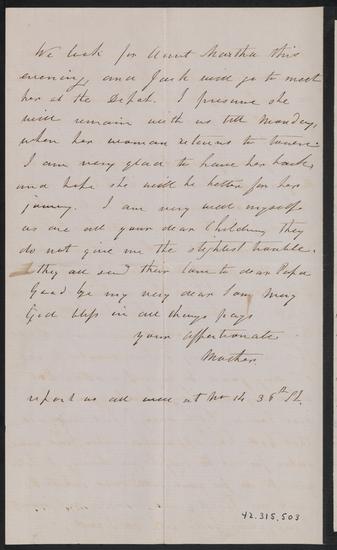 We look for Aunt Martha this
evening, and Jack will go to meet
her at the Depot. I presume she
will remain with us till Monday,
when her woman returns to town.
I am very glad to have her back
and hope she will be better for her
jouney. I am very well myself
as are all your dear Children, they
do not give me the slightest trouble.
they all send their love to dear Papa
Good bye my very dear Son, May
God bless in all things prays
your affectionate
Mother.
report us all well at No 14 38th St.
42.315.503